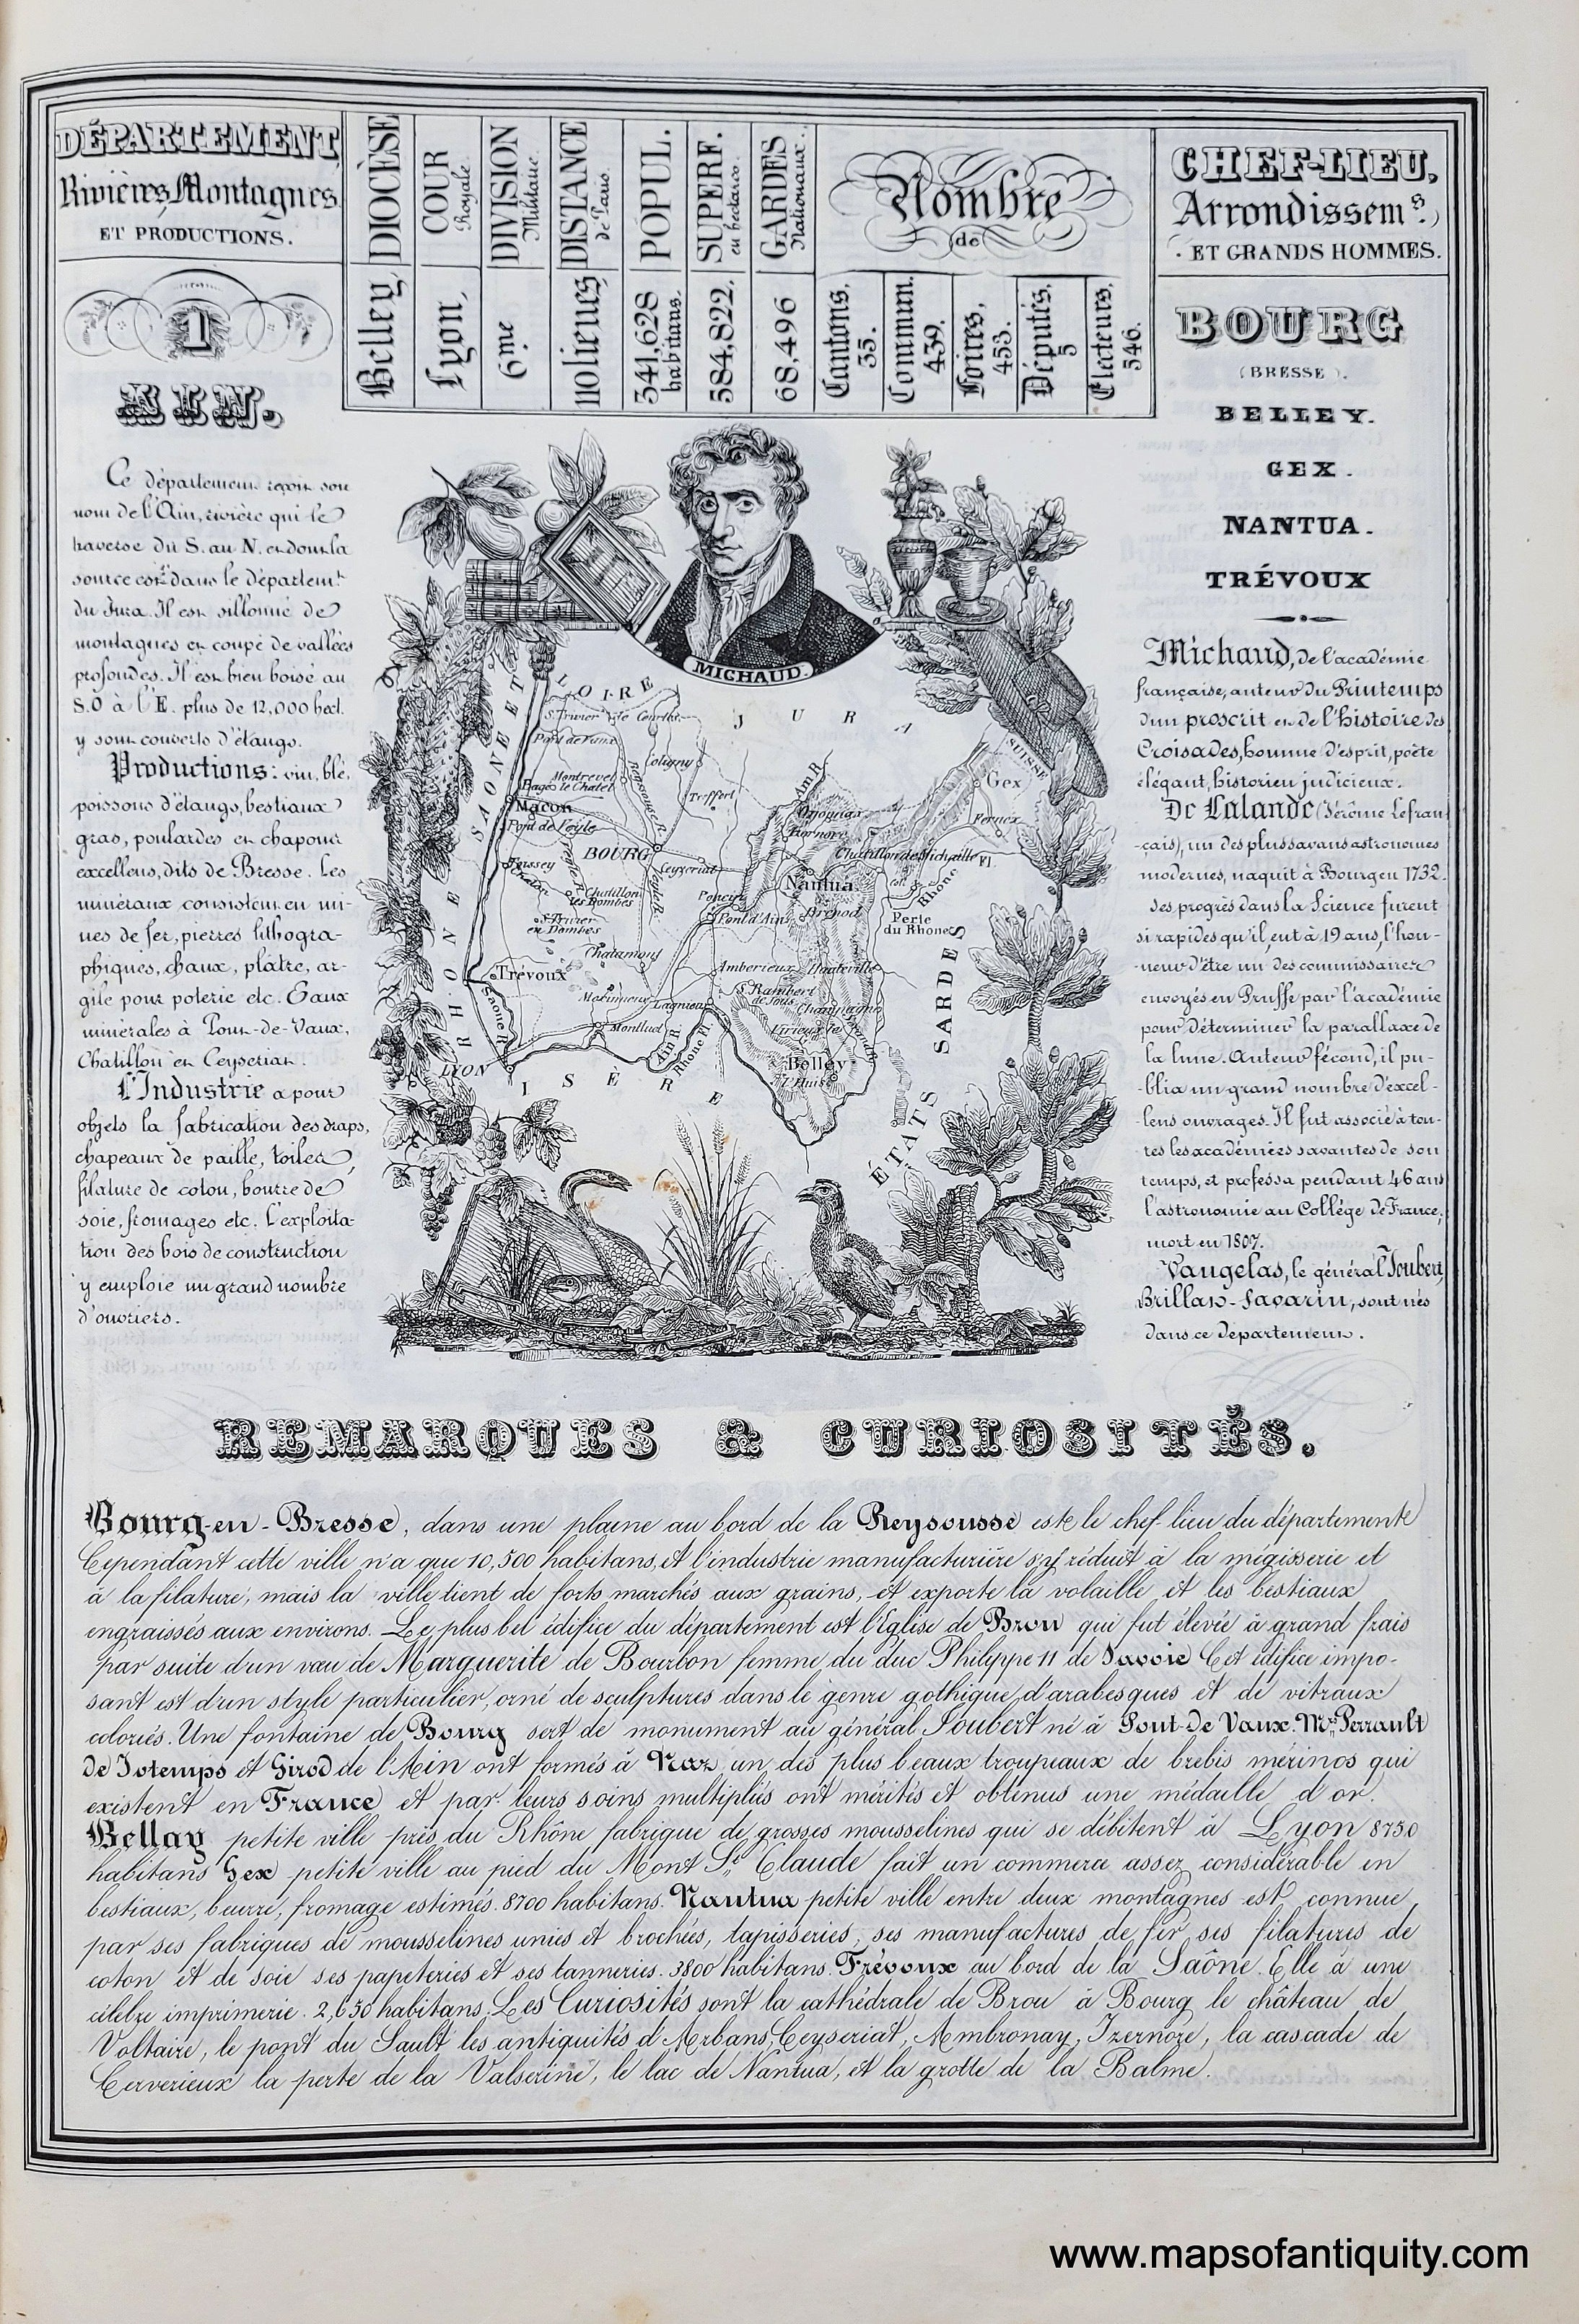 DÉPARTEMENT,
Rivières, Montagnes,
ET PRODUCTIONS.
DIOCÈSE
Belley,
COUR
Royale.
Lyon,
DIVISION
Militaire.
6me
DISTANCE
de Paris.
110 lieues
POPUL.
341,628
habitans.
SUPERF.
en hectares.
584,822.
GARDES
Nationaux.
68,496
Nombre
de
Cantons,
35.
Commun.
439.
Foires,
453.
Députés,
5
Electeurs,
546.
CHEF-LIEU,
Arrondissem.s
ET GRANDS HOMMES.
1
AIN.
Ce département reçoit son
nom de l'Ain, rivière qui le
traverse du S. au N. et dont la
source est dans le départemt
du Jura. Il est sillonné de
montagnes et coupé de vallées
profondes. Il est bien boisé au
S.O à l'E. plus de 12,000 hect.
y sont couverts d'étangs.
Productions: vin, blé,
poissons d'étangs, bestiaux
gras, poulardes et chapons
excellens, dits de Bresse. Les
minéraux consistent en mi-
nes de fer, pierres lithogra-
phiques, chaux, plâtre, ar-
gile pour poterie etc. Eaux
minérales à Pont-de-Vaux,
Chatillon et Ceyseriat.
L'Industrie a pour
objets la fabrication des draps,
chapeaux de paille, toiles,
filature de coton, bourre de
soie, fromages etc. L'exploita-
tion des bois de construction
y emploie un grand nombre
d'ouvriers.
MICHAUD.
SAONE ET LOIRE
JURA
SUISSE
S. Trivier de Courtes
Pont de Vaux
Coligny
Montrevel
Bagé le Chatel
Reyssouse R.
Treffort
Ain R.
Gex
Macon
Pont de Veyle
Oyonnax
Fernex
BOURG
Chatillon de Michaille
Ceyzeriat
Nantua
Poncin
Rhône
Chatillon
les Dombes
Pont d'Ain
Brénod
Perte
du Rhône
S. Trivier
en Dombes
Chalamont
Trévoux
Amberieux
Hauteville
S. Rambert
de Joux
Meximieux
Lagnieu
Champagne
Saone R.
Montluel
Virieux le
Ain R.
Rhone Fl.
Belley
L'Huis
LYON
RHONE
ISÈRE
ÉTATS SARDES
BOURG
(BRESSE).
BELLEY.
GEX.
NANTUA.
TRÉVOUX
Michaud, de l'académie
française, auteur du Printemps
d'un proscrit et de l'histoire des
Croisades, homme d'esprit, poète
élégant, historien judicieux.
De Lalande (Jérôme Lefran-
-çais), un des plus savans astronomes
modernes, naquit à Bourg en 1732.
Ses progrès dans la Science furent
si rapides qu'il eut à 19 ans, l'hon-
-neur d'être un des commissaires
envoyés en Prusse par l'académie
pour déterminer la parallaxe de
la lune. Auteur fécond, il pu-
-blia un grand nombre d'excel-
-lens ouvrages. Il fut associé à tou-
tes les académies savantes de son
temps, et professa pendant 46 ans
l'astronomie au Collége de France,
mort en 1807.
Vaugelas, le général Joubert,
Brillat-Savarin, sont nés
dans ce département.
REMARQUES & CURIOSITÉS.
Bourg-en-Bresse, dans une plaine au bord de la Reysousse est le chef-lieu du département
Cependant cette ville n'a que 10,500 habitans, et l'industrie manufacturière s'y réduit à la mégisserie et
à la filature, mais la ville tient de forts marchés aux grains, et exporte la volaille et les bestiaux
engraissés aux environs. Le plus bel édifice du département est l'Eglise de Brou qui fut élevée à grand frais
par suite d'un vœu de Marguerite de Bourbon femme du duc Philippe 11 de Savoie Cet édifice impo-
sant est d'un style particulier, orné de sculptures dans le genre gothique, d'arabesques et de vitraux
coloriés. Une fontaine de Bourg sert de monument au général Joubert né à Pont-de-Vaux. Mrs Perrault
de Jotemps et Girod de l'Ain ont formés à Naz, un des plus beaux troupeaux de brebis mérinos qui
existent en France et par leurs soins multipliés ont mérités et obtenus une médaille d'or.
Bellay petite ville près du Rhône fabrique de grosses mousselines qui se débitent à Lyon 8750
habitans Gex petite ville au pied du Mont St Claude fait un commerce assez considérable en
bestiaux, beurre, fromage estimés. 8700 habitans. Nantua petite ville entre deux montagnes est connue
par ses fabriques de mousselines unies et brochées, tapisseries, ses manufactures de fer ses filatures de
coton et de soie ses papeteries et ses tanneries. 3800 habitans. Trévoux au bord de la Saône. Elle à une
célèbre imprimerie. 2,650 habitans. Les Curiosités sont la cathédrale de Brou à Bourg le château de
Voltaire, le pont du Sault les antiquités d'Arbans, Ceyseriat, Ambronay, Izernore, la cascade de
Cerverieux la perte de la Valserine, le lac de Nantua, et la grotte de la Balme.
www.mapsofantiquity.com